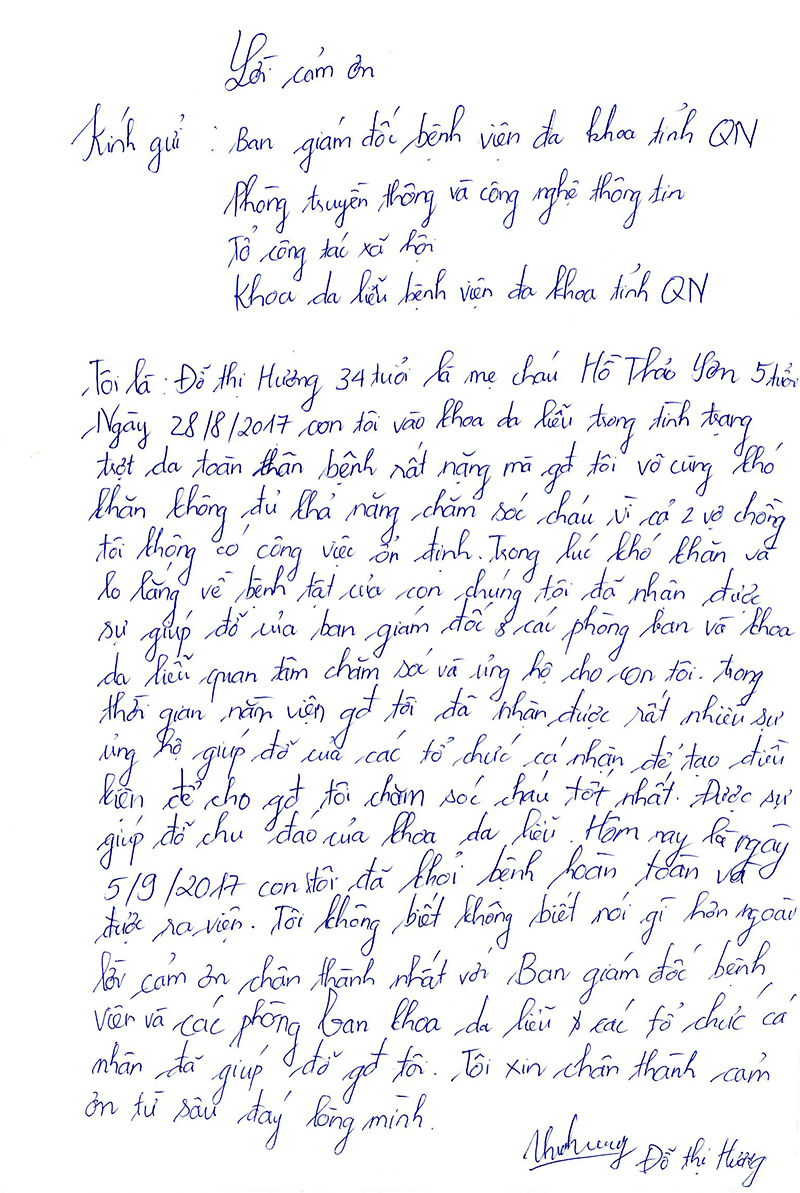 Lời cảm ơn
Kính gửi : Ban giám đốc bệnh viện đa khoa tỉnh QN
Phòng truyền thông và công nghệ thông tin
Tổ công tác xã hội
Khoa da liễu bệnh viện đa khoa tỉnh QN
Tôi là : Đỗ thị Hương 34 tuổi là mẹ cháu Hồ Thảo Yên 5 tuổi
Ngày 28/8/2017 con tôi vào khoa da liễu trong tình trạng
trợt da toàn thân bệnh rất nặng mà gđ tôi vô cùng khó
khăn không đủ khả năng chăm sóc cháu vì cả 2 vợ chồng
tôi không có công việc ổn định. Trong lúc khó khăn và
lo lắng về bệnh tật của con chúng tôi đã nhân được
sự giúp đỡ của ban giám đốc & các phòng ban và khoa
da liễu quan tâm chăm soc và ủng hộ cho con tôi. trong
thời gian nằm viện gđ tôi đã nhận được rất nhiều sự
ủng hộ giúp đỡ của các tổ chức cá nhân để tạo điều
kiện để cho gđ tôi chăm sóc cháu tốt nhất. Được sự
giúp đỡ chu đáo của khoa da liễu. Hôm nay là ngày
5/9/2017 con tôi đã khỏi bệnh hoàn toàn và
được ra viện. Tôi không biết không biết nói gì hơn ngoài
lời cảm ơn chân thành nhất với Ban giám đốc bệnh
viện và các phòng ban khoa da liễu & các tổ chức cá
nhân đã giúp đỡ gđ tôi. Tôi xin chân thành cảm
ơn từ sâu đáy lòng mình.
Đỗ thị Hương